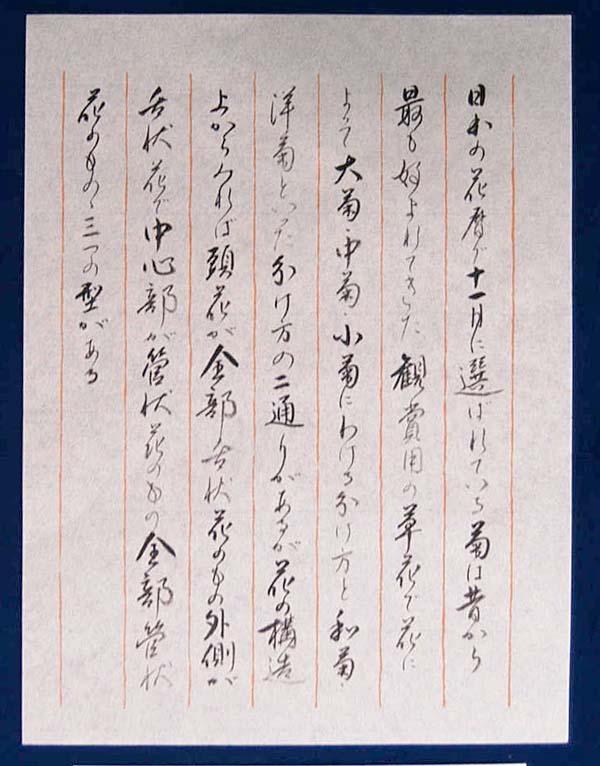 日本の花暦で十一月に選ばれている菊は昔から
最も好まれてきた観賞用の草花で花に
よって大菊・中菊・小菊にわける分け方と和菊・
洋菊といった分け方の二通りがあるが花の構造
上からみれば頭花が全部舌状花のもの外側が
舌状花で中心部が管状花のもの全部管状
花のものゝ三つの型がある